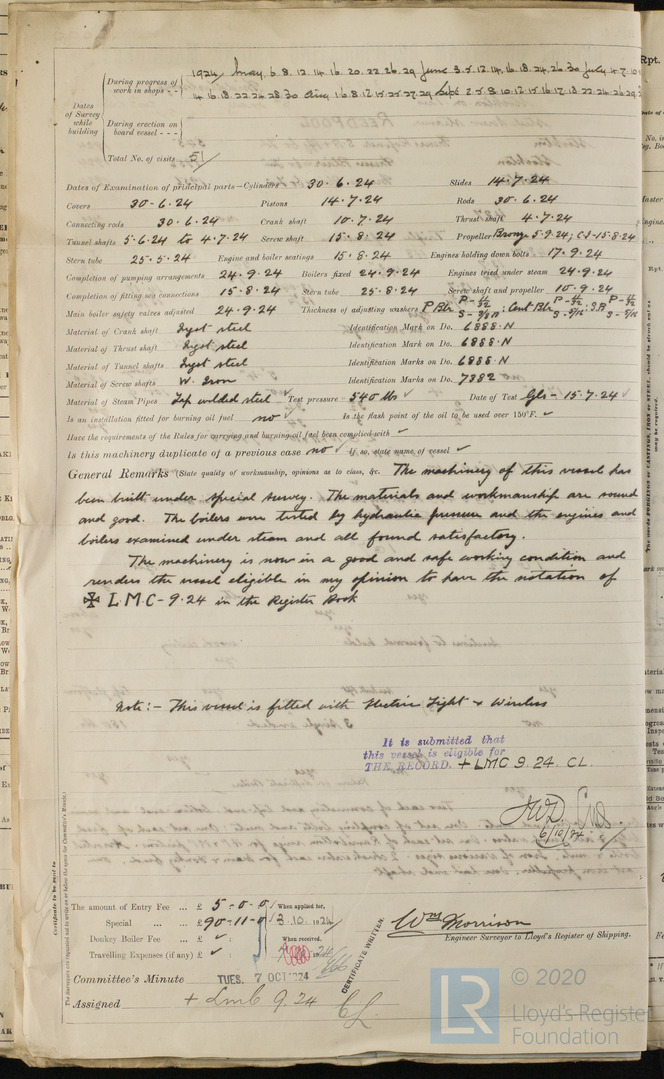 1924 May 6. 8. 12. 14. 16. 20. 22. 26. 29 June 3. 5. 12. 14. 16. 18. 24. 26. 30 July 4. 7. 10
During progress of work in shops - -
14. 16. 18. 22. 24. 28. 30 Aug 1. 6. 8. 12. 15. 25. 27. 29 Sept 2. 5. 8. 10. 12. 15. 16. 17. 18. 22. 24. 26. 29
Dates of Survey while building
During erection on board vessel - - -
Total No. of visits 51
Dates of Examination of principal parts—Cylinders 30. 6. 24 Slides 14. 7. 24
Covers 30. 6. 24 Pistons 14. 7. 24 Rods 30. 6. 24
Connecting rods 30. 6. 24 Crank shaft 10. 7. 24 Thrust shaft 4. 7. 24
Tunnel shafts 5. 6. 24 to 4. 7. 24 Screw shaft 15. 8. 24 Propeller Bronze 5. 9. 24; C.I - 15. 8. 24
Stern tube 25. 5. 24 Engine and boiler seatings 15. 8. 24 Engines holding down bolts 17. 9. 24
Completion of pumping arrangements 24. 9. 24 Boilers fixed 24. 9. 24 Engines tried under steam 24. 9. 24
Completion of fitting sea connections 15. 8. 24 Stern tube 25. 8. 24 Screw shaft and propeller 10. 9. 24
Main boiler safety valves adjusted 24. 9. 24 Thickness of adjusting washers
Material of Crank shaft Ingot steel Identification Mark on Do. 6888. N
Material of Thrust shaft Ingot steel Identification Mark on Do. 6888. N
Material of Tunnel shafts Ingot steel Identification Marks on Do. 6888. N
Material of Screw shafts W. Iron Identification Marks on Do. 7382
Material of Steam Pipes Lap welded steel ✓ Test pressure 540 lbs ✓ Date of Test Gls - 15. 7. 24 ✓
Is an installation fitted for burning oil fuel no ✓ Is the flash point of the oil to be used over 150°F. ✓
Have the requirements of the Rules for carrying and burning oil fuel been complied with ✓
Is this machinery duplicate of a previous case no ✓ If so, state name of vessel ✓
General Remarks (State quality of workmanship, opinions as to class, &c. The machinery of this vessel has
been built under special survey. The materials and workmanship are sound
and good. The boilers were tested by hydraulic pressure and the engines and
boilers examined under steam and all found satisfactory.
The machinery is now in a good and safe working condition and
renders the vessel eligible in my opinion to have the notation of
✠ L.M.C - 9. 24 in the Register Book
Note :- This vessel is fitted with Electric Light & Wireless
It is submitted that
this vessel is eligible for
THE RECORD. + LMC 9. 24. CL.
6/10/24
Certificate to be sent to
The amount of Entry Fee ... £ 5 - 0 - 0 When applied for,
Special ... £ 90 - 11 - 0 3. 10. 1924
Donkey Boiler Fee ... £ ✓ : When received,
Travelling Expenses (if any) £ ✓ :
CERTIFICATE WRITTEN.
Wm Morrison
Engineer Surveyor to Lloyd's Register of Shipping.
Committee's Minute TUES. 7 OCT 1924
Assigned + LMC 9. 24 CL
© 2020
LR
Lloyd's Register
Foundation
Rpt.